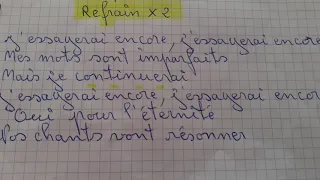 Refrain x 2
J'essayerai encore, j'essayerai encore
Mes mots sont imparfaits
Mais je continuerai
J'essayerai encore, j'essayerai encor
Oui pour l'éternité
Vos chants vont résonner